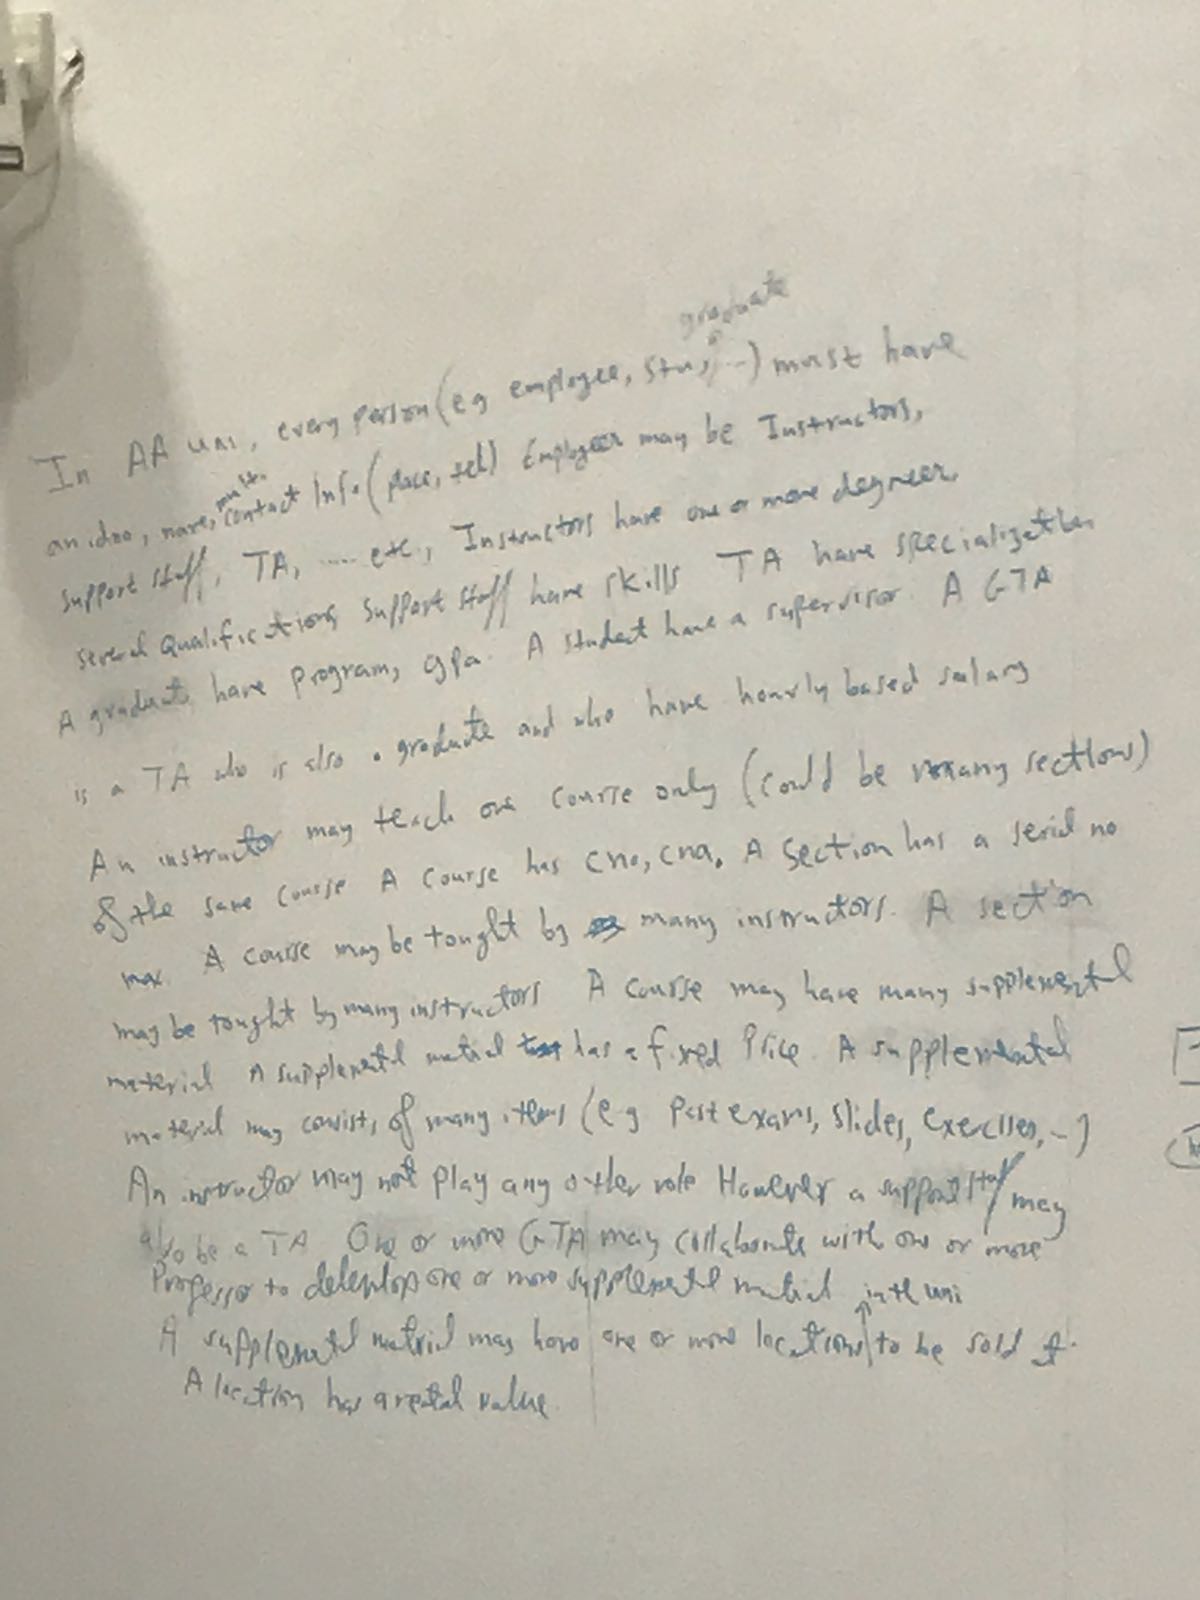 graduate
In AA uni, every person (eg employee, stu, ...) must have
multi.
an idno, name, contact Info (place, tel) Employees may be Instructors,
support staff, TA, ..... etc., Instructors have one or more degrees,
several Qualifications Support staff have skills TA have specialization
A graduate have program, gpa. A student have a supervisor. A GTA
is a TA who is also a graduate and also have hourly based salary
An instructor may teach one course only (could be many sections)
of the same course A course has cno, cna. A section has a serial no
max. A course may be tought by many instructors. A section
may be tought by many instructors A course may have many supplemental
material A supplemental matrial has a fixed Price. A supplemental
material may consists of many items (eg Past exams, slides, exercises, ...)
An instructor may not play any other role However a support staff may
also be a TA One or more GTA may collaborate with one or more
Professor to develop one or more supplemental matrial in the uni
A supplemental matrial may have one or more locations to be sold at.
A location has a rental value.